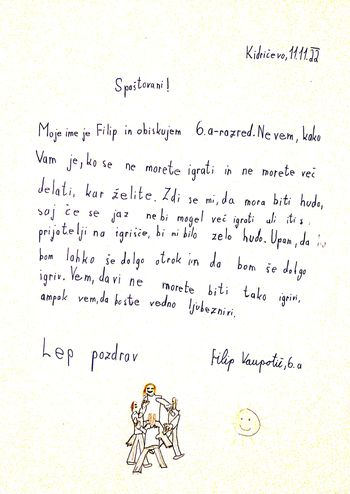 Kidričevo, 11.11.22
Spoštovani!
Moje ime je Filip in obiskujem 6.a-razred. Ne vem, kako
Vam je, ko se ne morete igrati in ne morete več
delati, kar želite. Zdi se mi, da mora biti hudo,
saj če se jaz nebi mogel več igrati ali iti s
prijatelji na igrišče, bi mi bilo zelo hudo. Upam, da
bom lahko še dolgo otrok in da bom še dolgo
igriv. Vem, da vi ne morete biti tako igrivi,
ampak vem, da boste vedno ljubeznivi.
Lep pozdrav
Filip Vaupotič, 6.a